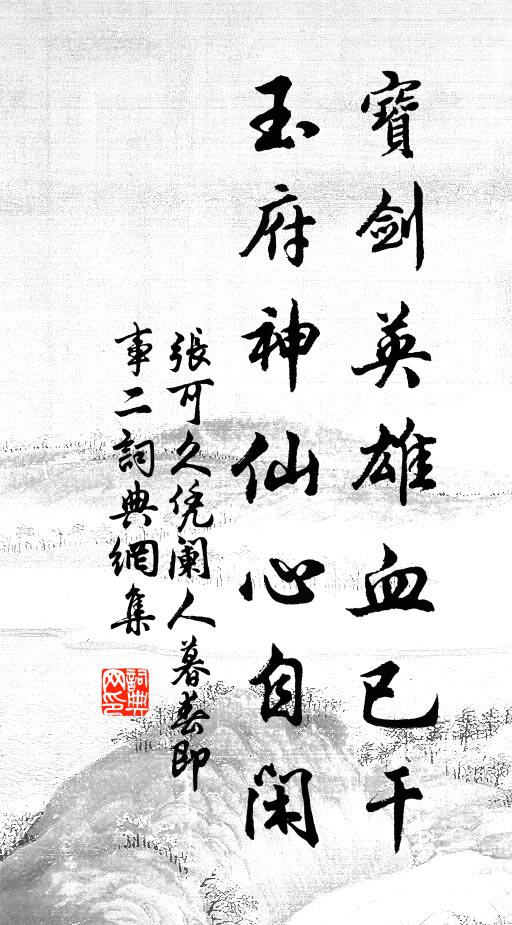 寶劍英雄血已干
玉府神仙心自閑
張可久凭闌人暮春即
事二詞典網集
詞典网印